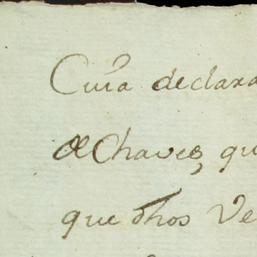 Cuia declara
de Chaves, qu
que dhos Ve